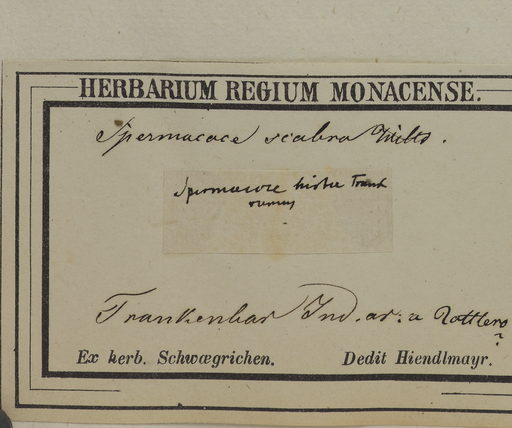 HERBARIUM REGIUM MONACENSE.
Spermacoce scabra Willd.
Spermacoce
Trankenbar Ind. or: a Rottlero
?
Ex herb. Schwægrichen. Dedit Hiendlmayr.